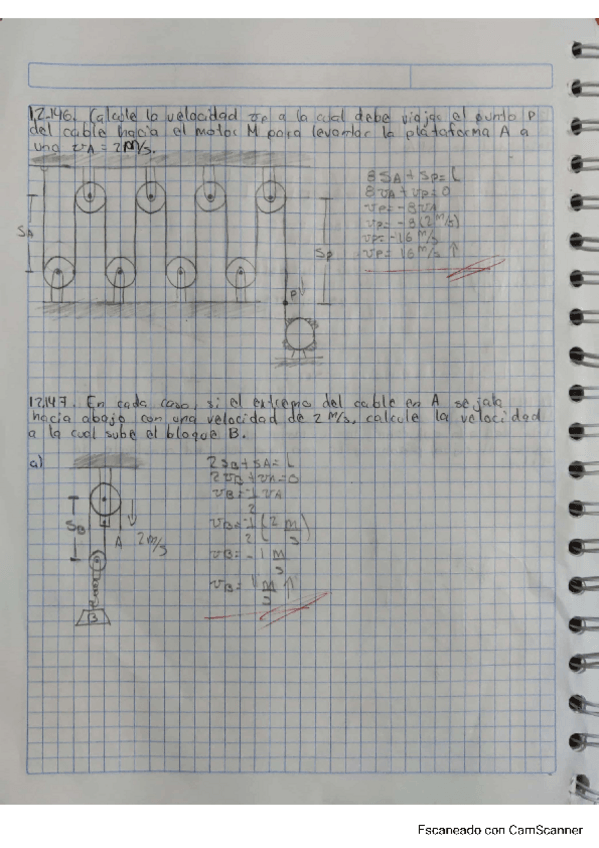 12-146. Calcule la velocidad vP a la cual debe viajar el punto P
del cable hacia el motor M para levantar la plataforma A a
una vA = 2m/s.
8SA + SP = L
8vA + vP = 0
vP = -8vA
vP = -8(2m/s)
vP = -16 m/s
vP = 16 m/s ↑
SA
SP
P
12.147. En cada caso, si el extremo del cable en A se jala
hacia abajo con una velocidad de 2 m/s, calcule la velocidad
a la cual sube el bloque B.
a)
2SB + SA = L
2vB + vA = 0
vB = -1/2 vA
vB = -1/2 (2 m/s)
vB = -1 m/s
vB = 1 m/s ↑
SB
A
2m/s
B
Escaneado con CamScanner